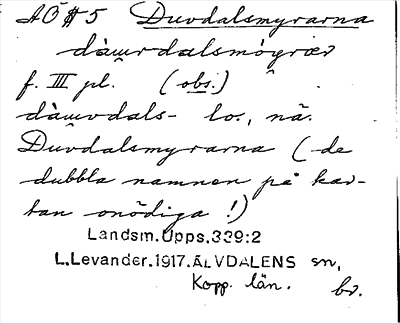 AÖ § 5 Duvdalsmyrarna
dàuvdalsmógrær
f. III pl. (obs.)
dàuvdals- los, nä.
Duvdalsmyrarna (de
dubbla namnen på kar-
tan onödiga!)
Landsm.Upps.339:2
L.Levander.1917.ÄLVDALENS sn,
Kopp. län. br.